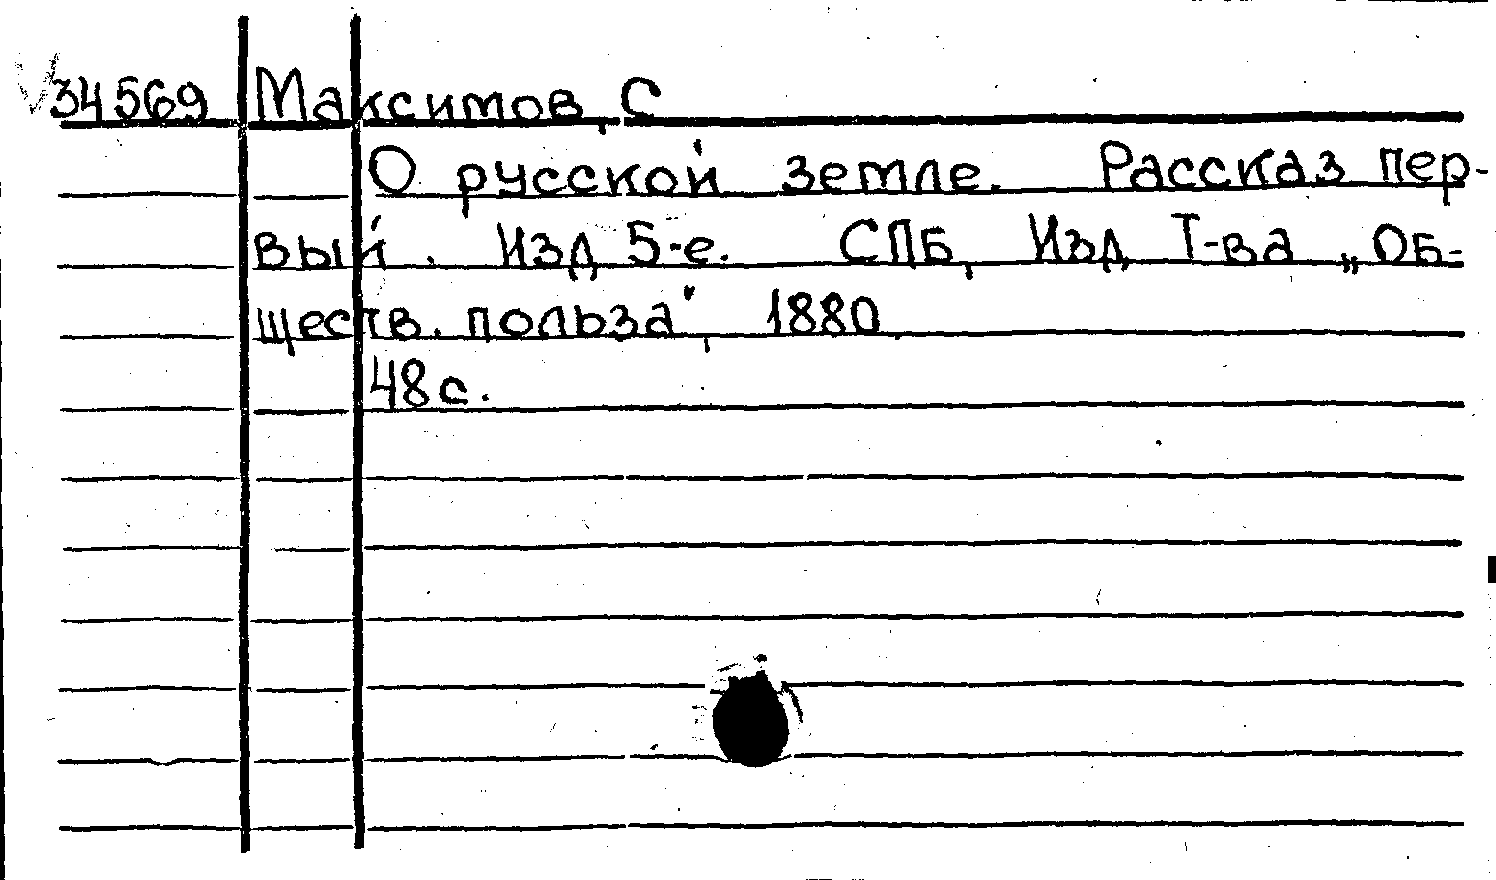 34569 Максимов, С
О русской земле. Рассказ пер-
вый. Изд 5-е. СПБ, Изд. Т-ва „Об-
ществ. польза", 1880.
48 с.